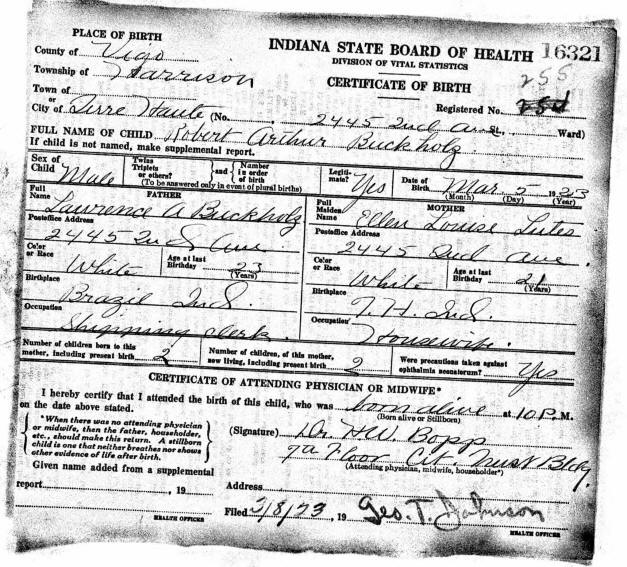 PLACE OF BIRTH
INDIANA STATE BOARD OF HEALTH 16321
County of Vigo
DIVISION OF VITAL STATISTICS
Township of Harrison
CERTIFICATE OF BIRTH
255
Town of
or
Registered No.
City of Terre Haute (No. 2445 2nd Ave St., Ward)
FULL NAME OF CHILD Robert Arthur Buckholz
If child is not named, make supplemental report.
Sex of Child Male
Twins Triplets or others? and Number in order of birth
(To be answered only in event of plural births)
Legitimate? Yes
Date of Birth Mar. 5 1923
(Month) (Day) (Year)
FATHER
Full Name Lawrence A Buckholz
MOTHER
Full Maiden Name Ellen Louise Lutes
Postoffice Address
2445 2nd Ave
Postoffice Address
2445 2nd Ave.
Color or Race White
Age at last Birthday 23 (Years)
Color or Race White
Age at last Birthday 21 (Years)
Birthplace
Brazil Ind.
Birthplace
T. H. Ind.
Occupation
Shipping Clerk.
Occupation
Housewife.
Number of children born to this mother, including present birth 2
Number of children, of this mother, now living, including present birth 2
Were precautions taken against ophthalmia neonatorum? Yes
CERTIFICATE OF ATTENDING PHYSICIAN OR MIDWIFE*
I hereby certify that I attended the birth of this child, who was born alive at 10 P.M.
on the date above stated.
(Born alive or Stillborn)
*When there was no attending physician
or midwife, then the father, householder,
etc., should make this return. A stillborn
child is one that neither breathes nor shows
other evidence of life after birth.
(Signature) Dr. H.W. Bopp
Floor Cit. Trust Bldg.
(Attending physician, midwife, householder*)
Given name added from a supplemental
report, 19
Address
HEALTH OFFICER
Filed 3/8/23, 19 Geo. T. Johnson
HEALTH OFFICER